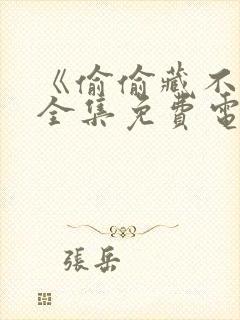 《偷偷藏不
全集免費電
張岳